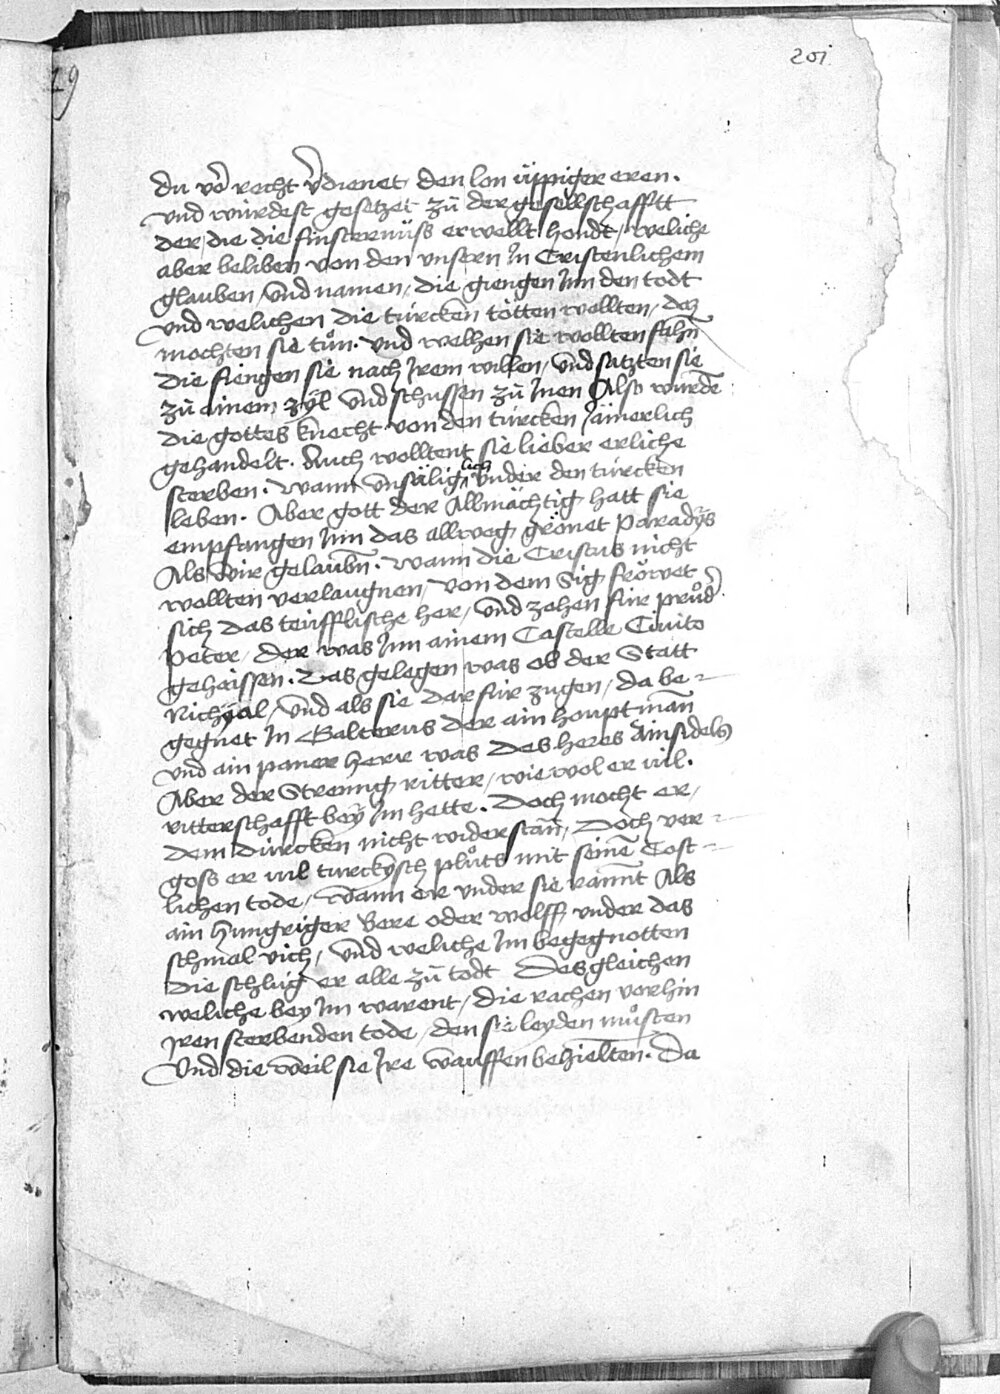 201
19
du vō recht v̄dienet den lon üppiger eren.
und würdest gesetzet zů der gesellschafftt
der / die die finsternüss erwellt hondt / weliche
aber beliben von den unsern In Cristenlichem
glauben / und namen / die giengen Inn den todt
und welichen die türcken tötten wollten / dez
mochten sie tůn. und welhen sie wollten fahn̄
die fiengen sie nach Irem willen / und satzten sie
zů ainem zyl und schussen zů Inen Also wurdē
die gottes knecht von den türcken Jämerlich
gehandelt. Auch wolltent sie lieber erliche
sterben. wann unsäliglich under den türcken
leben. Aber gott der Allmächtig hatt sie
empfangen Inn das allweg grönet Paradÿs
Als wir gelaubn̄. wann die Cristus nicht
wollten verlaugnen / von dem Sig fröwet
sich das teufflische her / und zohen für průd̄
Peter / der was Inn ainem Castelle Civito
gehaissen. Das gelegen was ob der Statt
Nichÿal / und als sie dar für zugen / da be-
gegnet In Galterus der ain houptman̄
und ain paner herr was des heres Ainsidels
Aber der Streung ritter / wie wol er vil.
ritterschafft bey Im hette. Doch mocht er /
dem dürcken nicht widerstan̄ / Doch ver-
goss er vil turckysch plůts mit seinē Cost-
lichen tode / wann er under sie rannt Als
ain hungriger Bere oder wolff under das
schmal vich / und weliche Im begegnotten
die schlug er alle zů todt Desgleichen
weliche bey Im warent / die rachen vorhin
Iren sterbenden tode / den sie leyden můsten
und die weil sie Ire wauffen behielten. Da